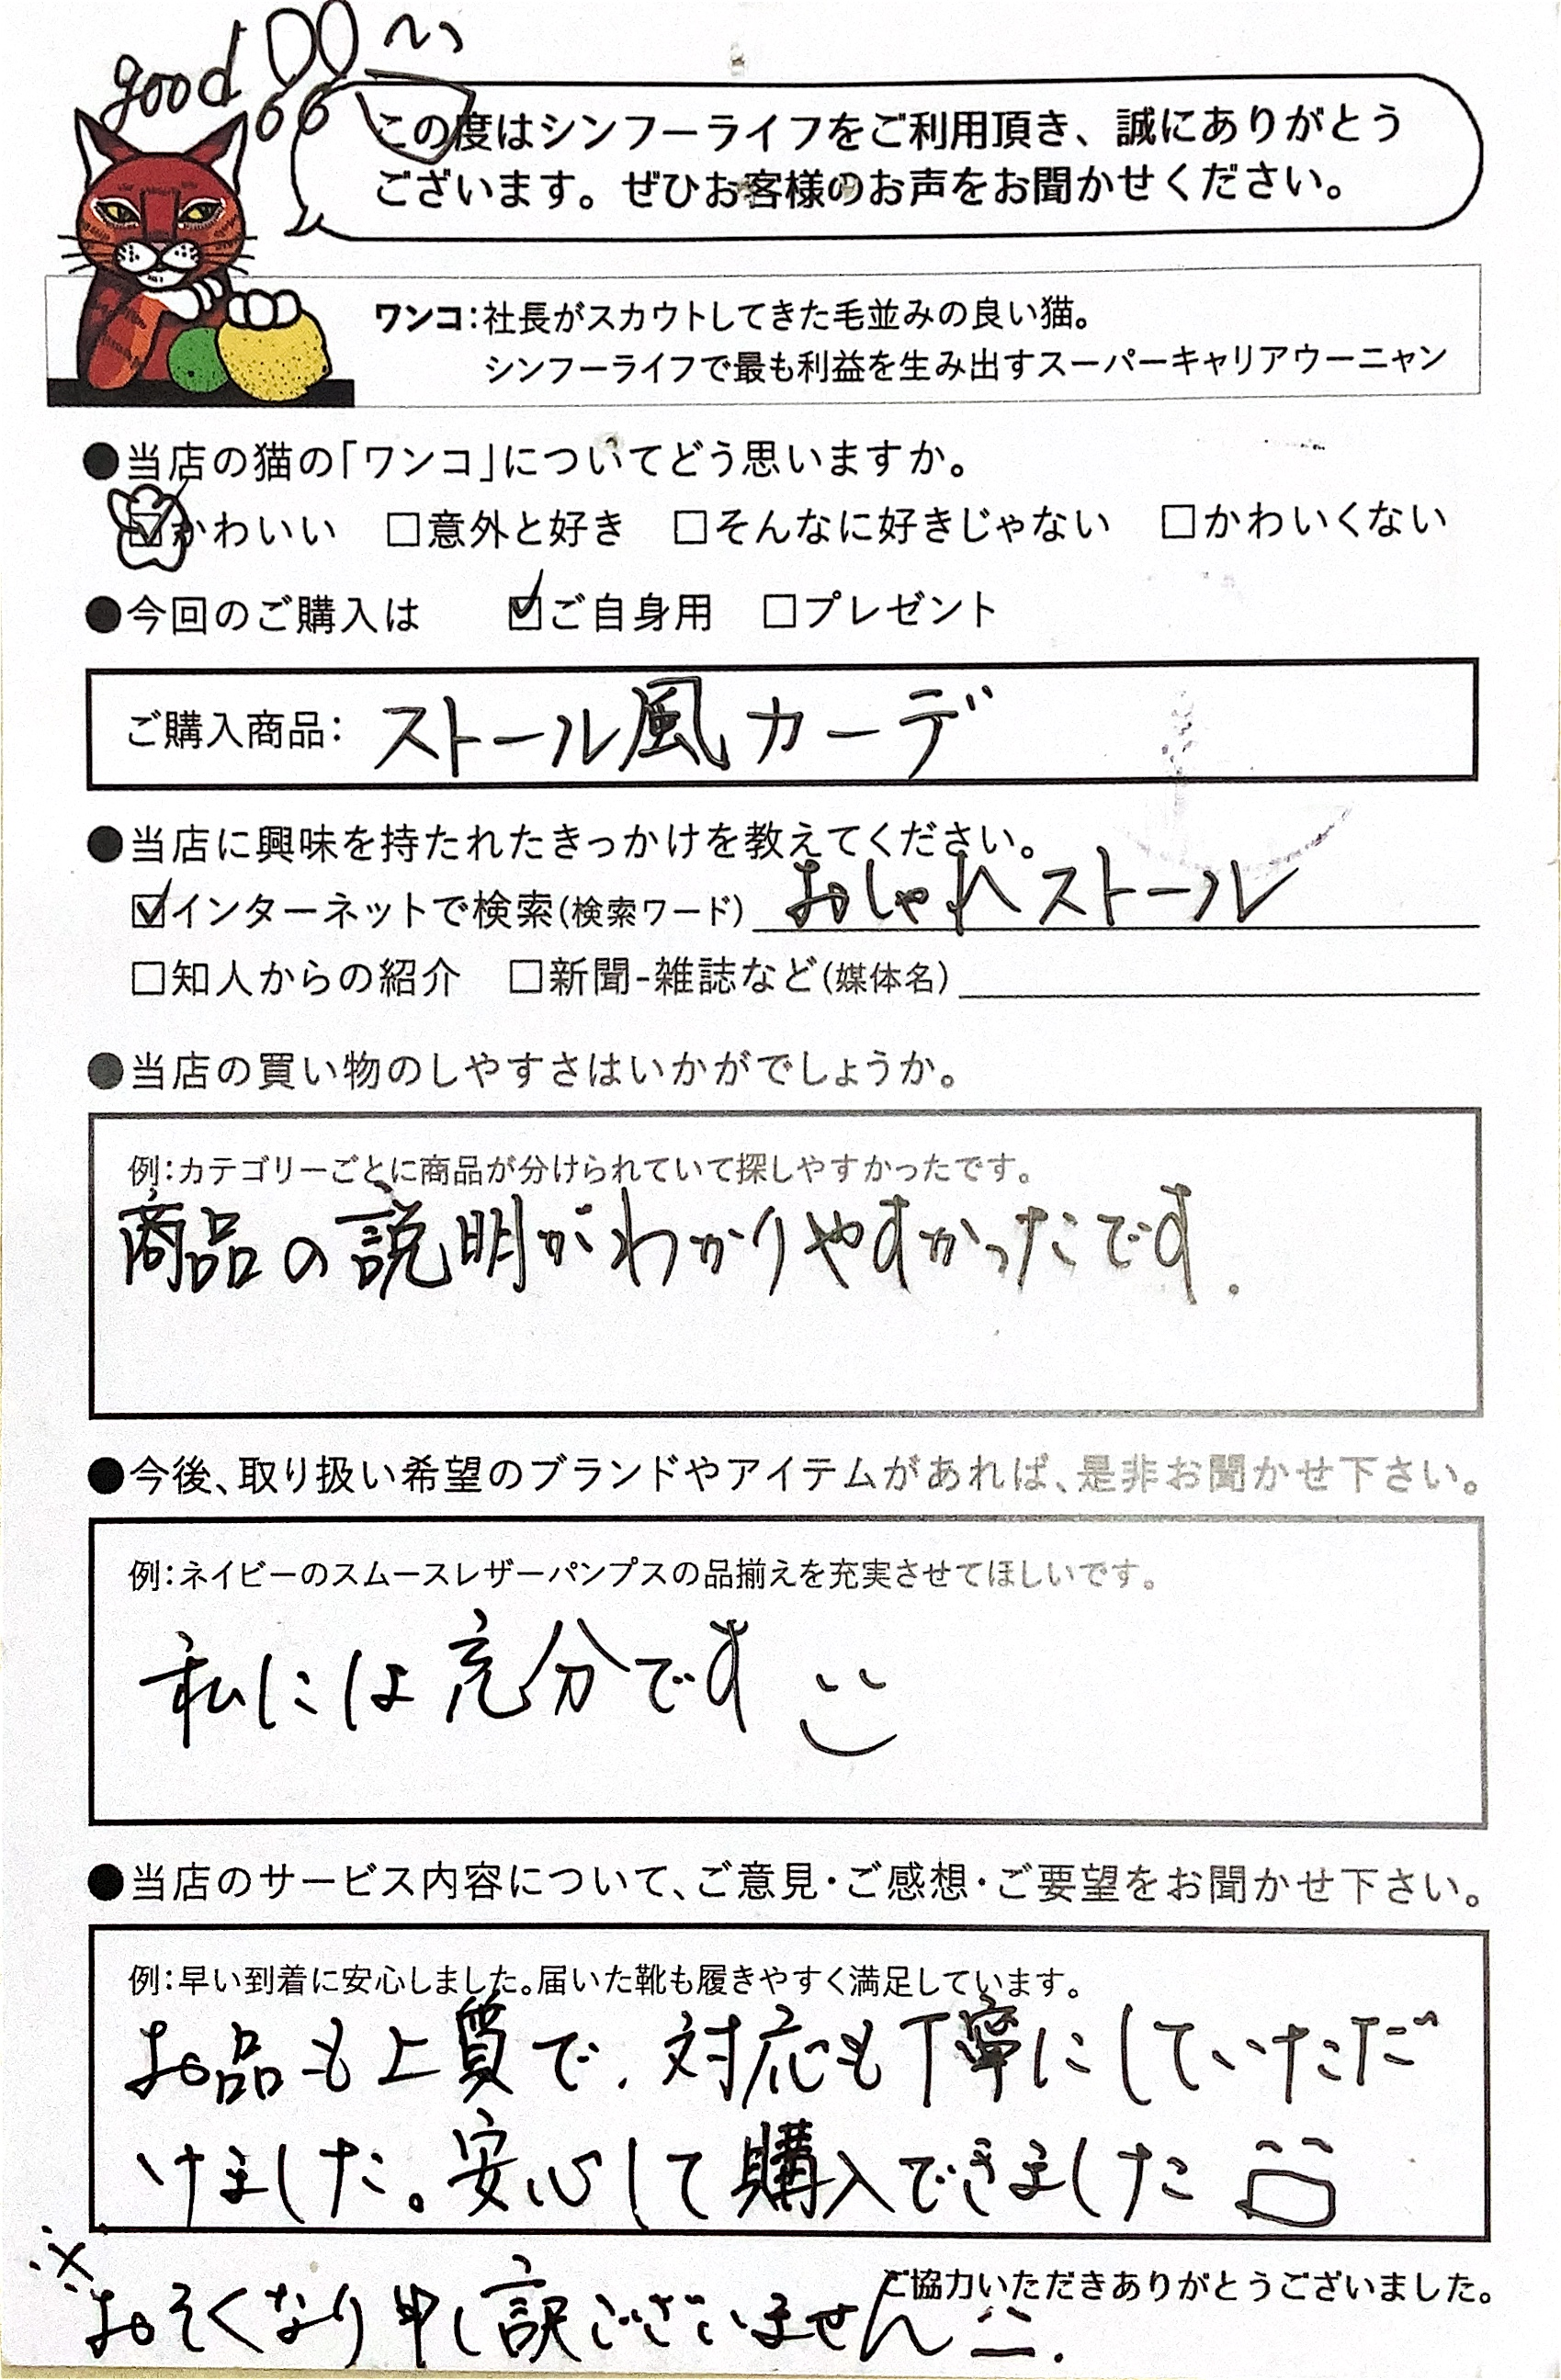 good!!
この度はシンフーライフをご利用頂き、誠にありがとう
ございます。ぜひお客様のお声をお聞かせください。
ワンコ：社長がスカウトしてきた毛並みの良い猫。
シンフーライフで最も利益を生み出すスーパーキャリアウーニャン
●当店の猫の「ワンコ」についてどう思いますか。
☑かわいい □意外と好き □そんなに好きじゃない □かわいくない
●今回のご購入は ☑ご自身用 □プレゼント
ご購入商品： ストール風カーデ
●当店に興味を持たれたきっかけを教えてください。
☑インターネットで検索(検索ワード) おしゃれストール
□知人からの紹介 □新聞-雑誌など(媒体名)
●当店の買い物のしやすさはいかがでしょうか。
例：カテゴリーごとに商品が分けられていて探しやすかったです。
商品の説明がわかりやすかったです.
●今後、取り扱い希望のブランドやアイテムがあれば、是非お聞かせ下さい。
例：ネイビーのスムースレザーパンプスの品揃えを充実させてほしいです。
私には充分です
●当店のサービス内容について、ご意見・ご感想・ご要望をお聞かせ下さい。
例：早い到着に安心しました。届いた靴も履きやすく満足しています。
お品も上質で、対応も丁寧にしていただ
けました。安心して購入できました
ご協力いただきありがとうございました。
※おそくなり申し訳ございません